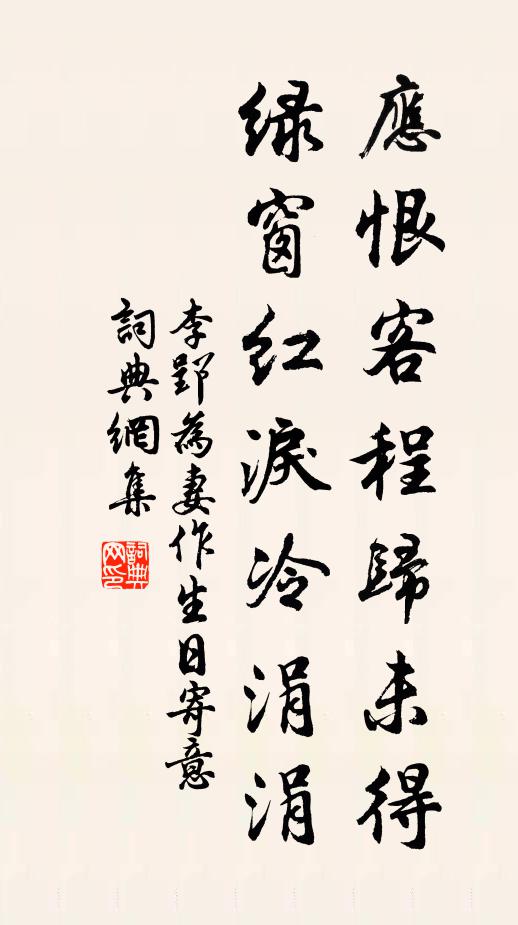 應恨客程歸未得
綠窗紅淚冷涓涓
李郢為妻作生日寄意
詞典網集
詞典网印